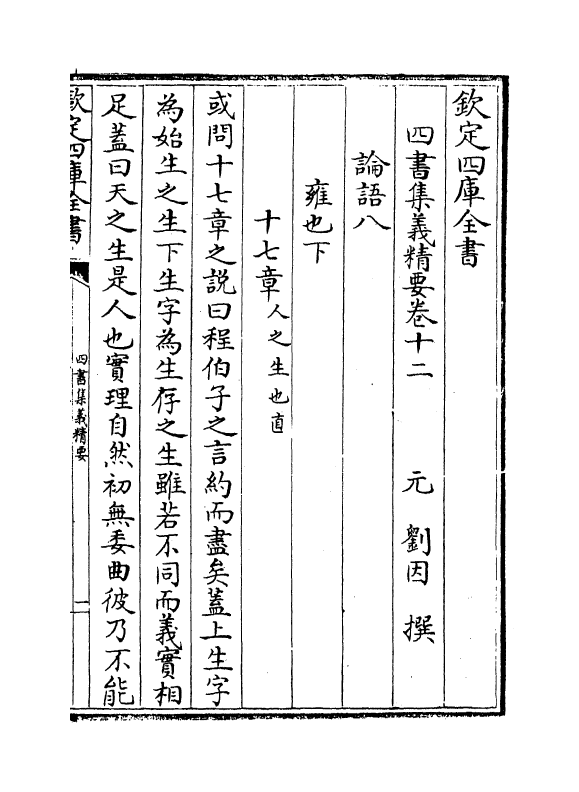 欽定四庫全書
四書集義精要卷十二　元　劉因　撰
論語八
雍也下
十七章人之生也直
或問十七章之說曰程伯子之言約而盡矣蓋上生字
為始生之生下生字為生存之生雖若不同而義實相
足蓋曰天之生是人也實理自然初無委曲彼乃不能
欽定四庫全書
四書集義精要